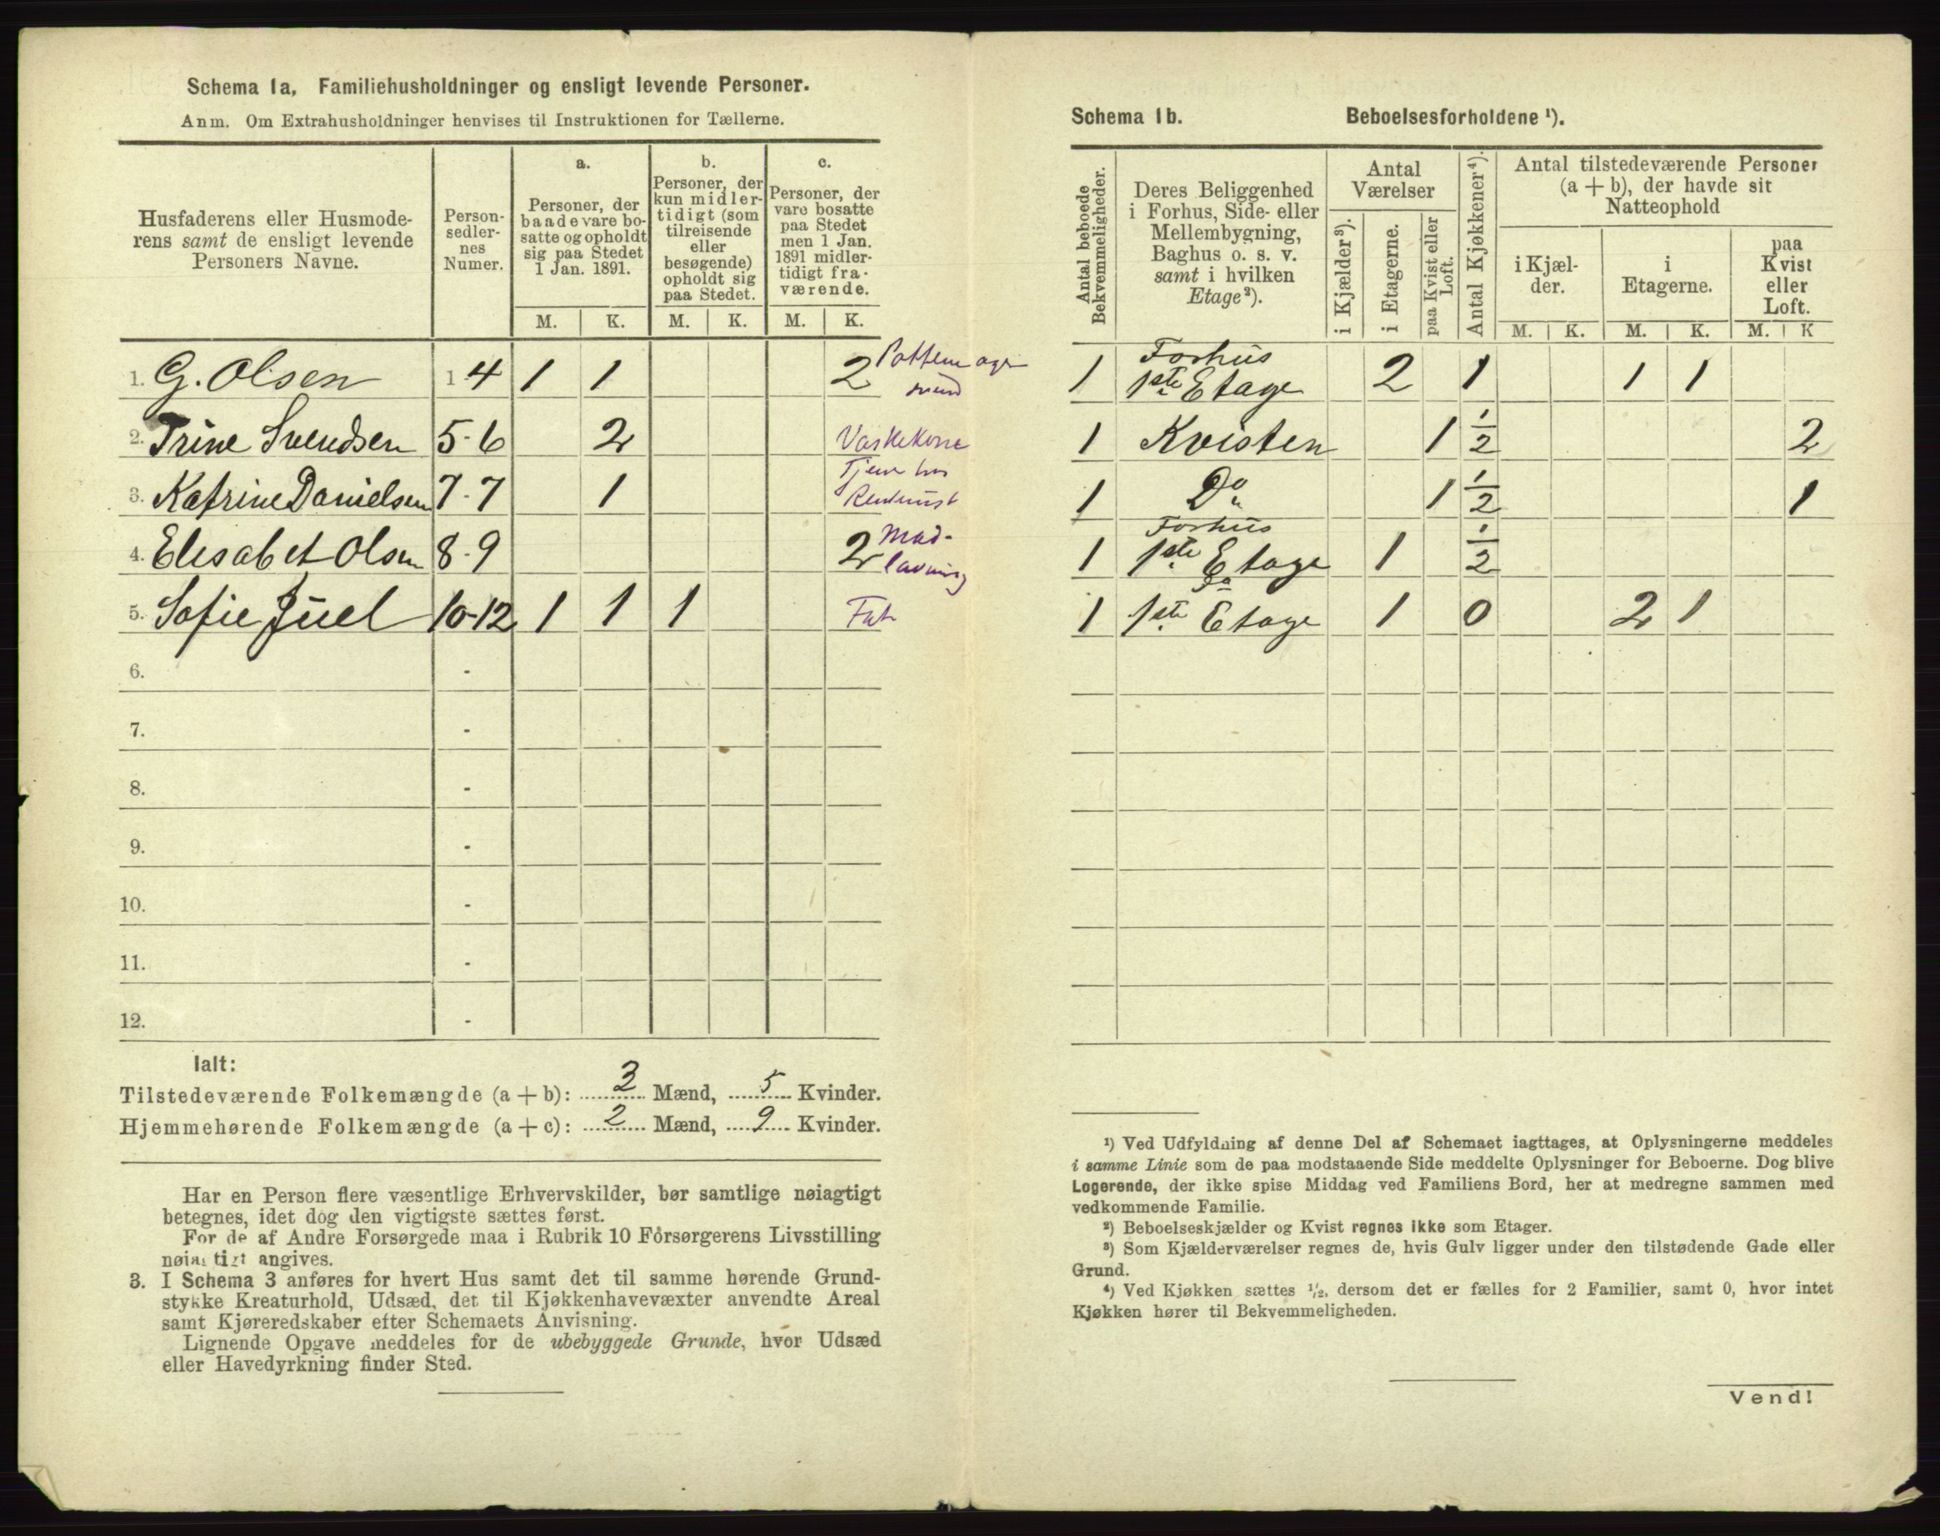 Schema 1a, Familiehusholdninger og ensligt levende Personer.
Anm. Om Extrahusholdninger henvises til Instruktionen for Tællerne.
Husfaderens eller Husmode-
rens samt de ensligt levende
Personers Navne.
Person-
sedler-
nes
Numer.
a.
Personer, der
baade vare bo-
satte og opholdt
sig paa Stedet
1 Jan. 1891.
b.
Personer, der
kun midler-
tidigt (som
tilreisende
eller
besøgende)
opholdt sig
paa Stedet.
c.
Personer, der
vare bosatte
paa Stedet
men 1 Jan.
1891 midler-
tidigt fra-
værende.
M. K. M. K. M. K.
1. G. Olsen 1-4 1 1 2 Pottemager
svend
2. Trine Svendsen 5-6 2 Vaskekone
3. Katrine Danielsen 7-7 1 Tjener hos
4. Elisabet Olsen 8-9 2 Mad-
lavning
5. Sofie Juel 10-12 1 1 1
6. -
7. -
8. -
9. -
10. -
11. -
12. -
Ialt:
Tilstedeværende Folkemængde (a + b): 3 Mænd, 5 Kvinder.
Hjemmehørende Folkemængde (a + c): 2 Mænd, 9 Kvinder.
Har en Person flere væsentlige Erhvervskilder, bør samtlige nøiagtigt
betegnes, idet dog den vigtigste sættes først.
For de af Andre Forsørgede maa i Rubrik 10 Forsørgerens Livsstilling
nøiagtigt angives.
3. I Schema 3 anføres for hvert Hus samt det til samme hørende Grund-
stykke Kreaturhold, Udsæd, det til Kjøkkenhavevæxter anvendte Areal
samt Kjøreredskaber efter Schemaets Anvisning.
Lignende Opgave meddeles for de ubebyggede Grunde, hvor Udsæd
eller Havedyrkning finder Sted.
Schema 1b. Beboelsesforholdene ¹).
Antal beboede
Bekvemmeligheder.
Deres Beliggenhed
i Forhus, Side- eller
Mellembygning,
Baghus o. s. v.
samt i hvilken
Etage²).
Antal
Værelser
i Kjælder³).
i Etagerne.
paa Kvist eller
Loft.
Antal Kjøkkener⁴).
Antal tilstedeværende Personer
(a + b), der havde sit
Natteophold
i Kjæl-
der.
i
Etagerne.
paa
Kvist
eller
Loft.
M. K. M. K. M. K
1 Forhus
1ste Etage 2 1 1 1
1 Kvisten 1 1/2 2
1 Do 1 1/2 1
1 Forhus
1ste Etage 1 1/2
1 Do
1ste Etage 1 0 2 1
¹) Ved Udfyldning af denne Del af Schemaet iagttages, at Oplysningerne meddeles
i samme Linie som de paa modstaaende Side meddelte Oplysninger for Beboerne. Dog blive
Logerende, der ikke spise Middag ved Familiens Bord, her at medregne sammen med
vedkommende Familie.
²) Beboelseskjælder og Kvist regnes ikke som Etager.
³) Som Kjælderværelser regnes de, hvis Gulv ligger under den tilstødende Gade eller
Grund.
⁴) Ved Kjøkken sættes 1/2, dersom det er fælles for 2 Familier, samt 0, hvor intet
Kjøkken hører til Bekvemmeligheden.
Vend!